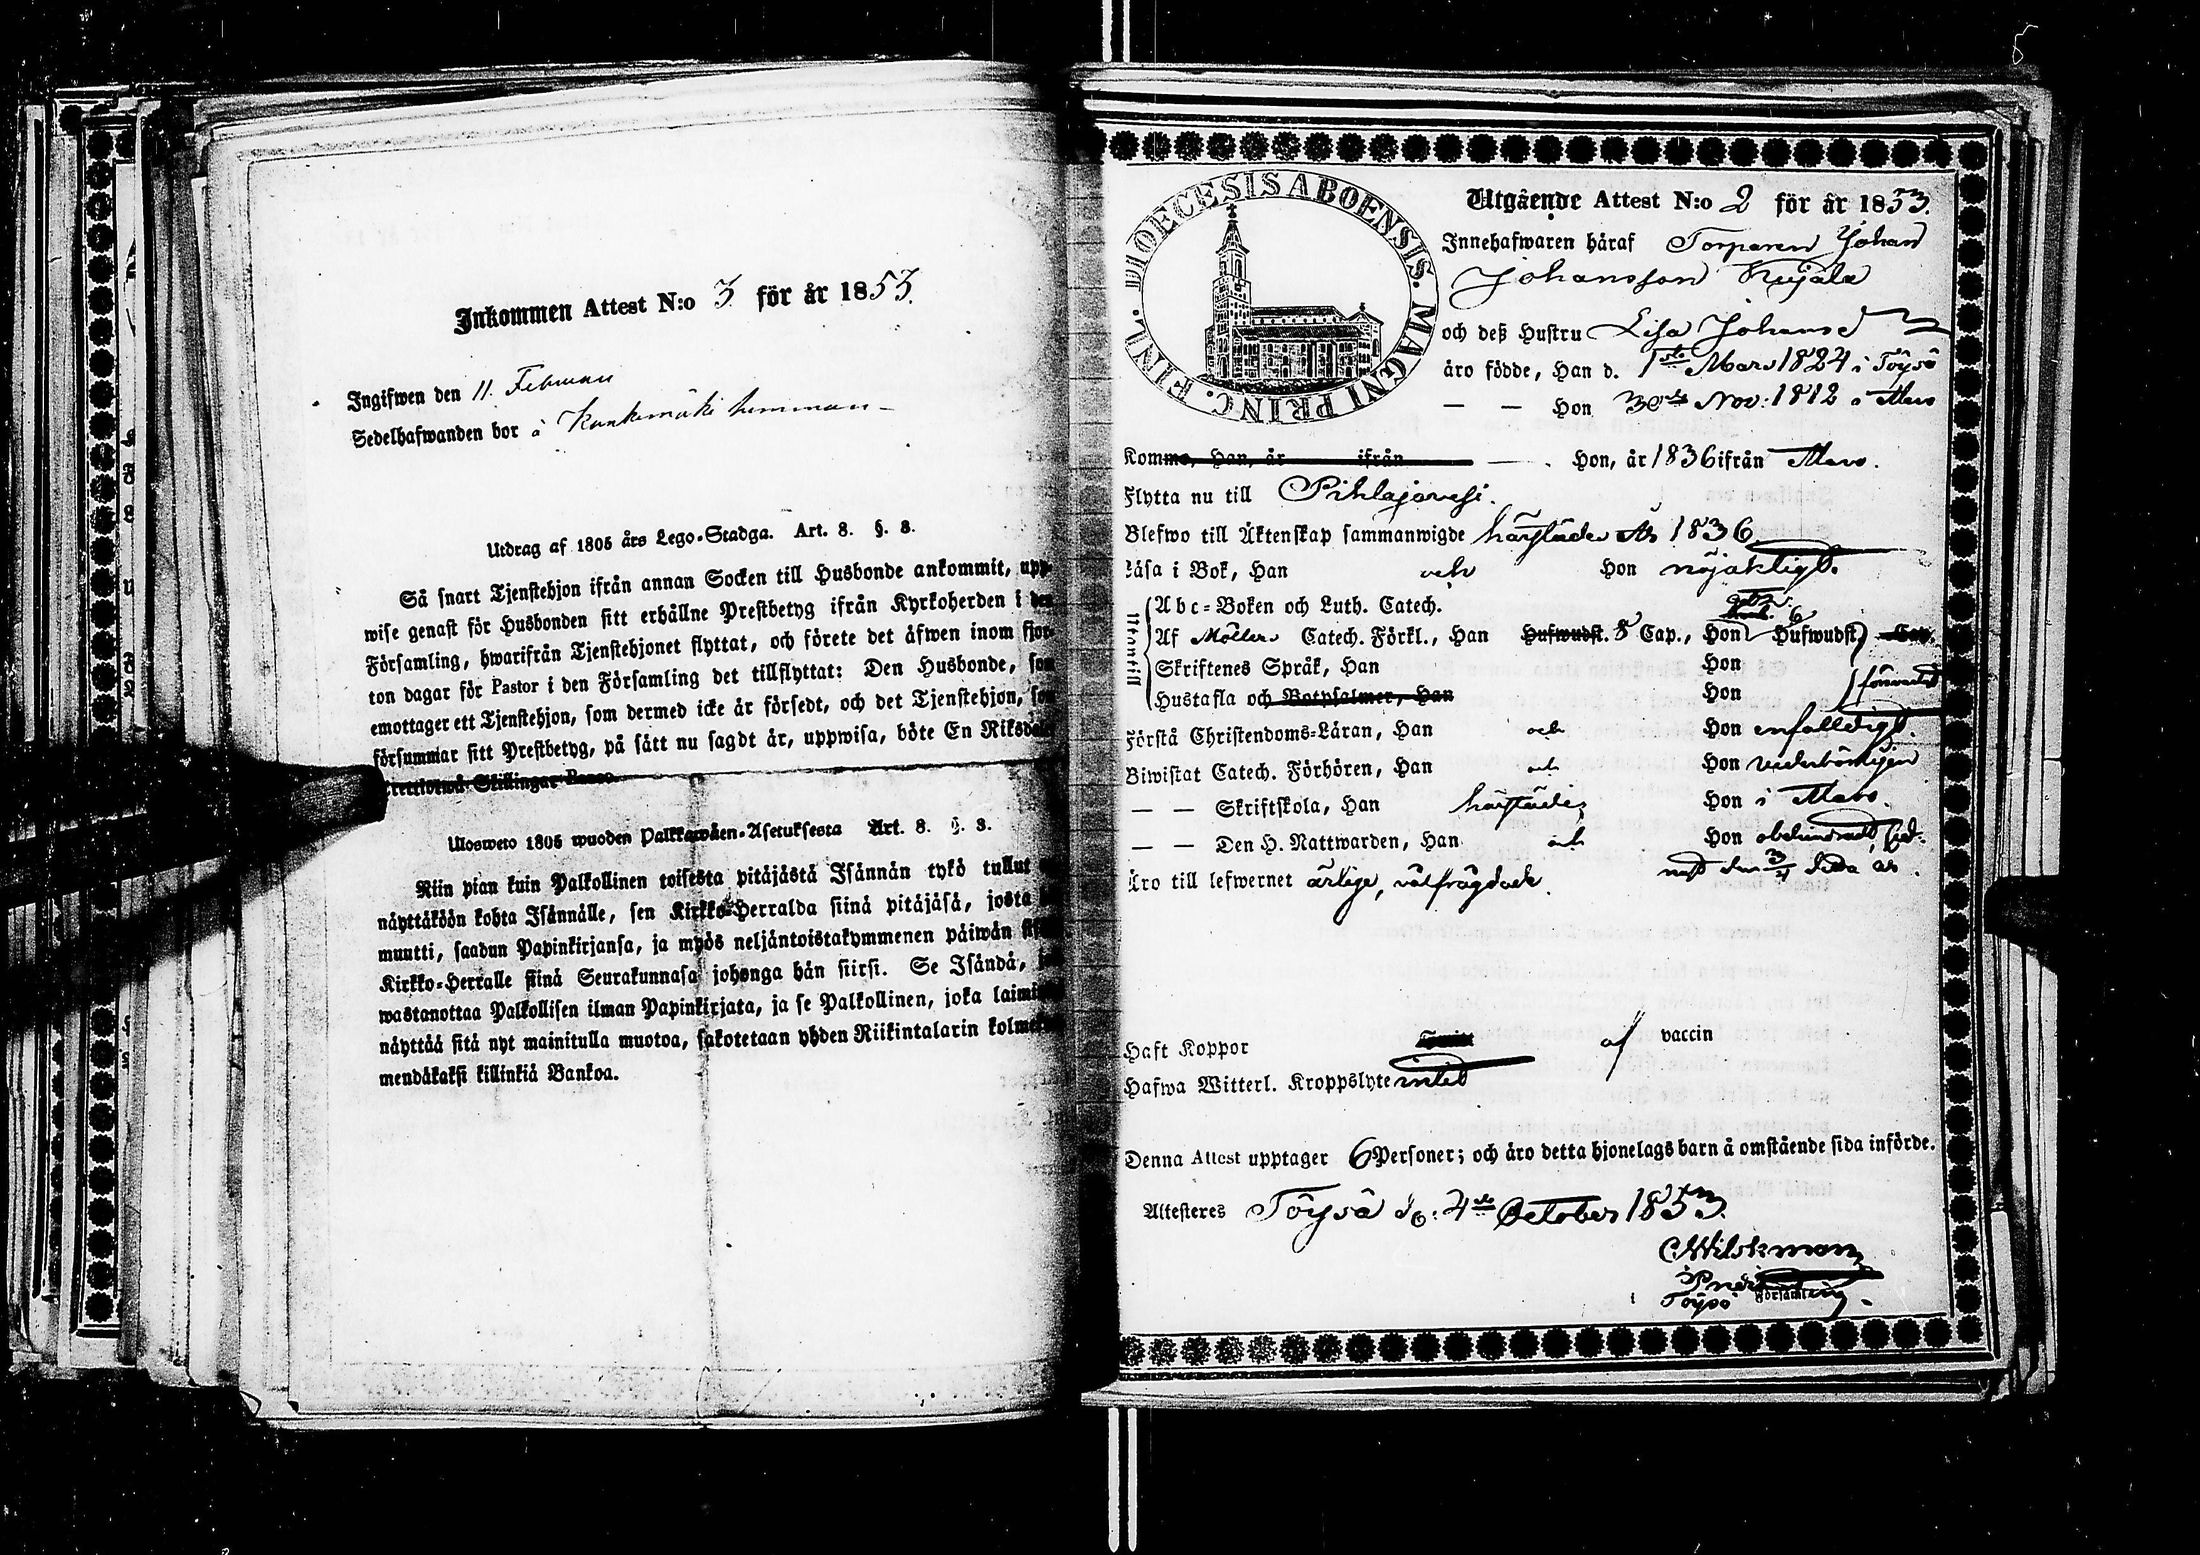 Inkommen Attest N:o 3 för år 1853.
Ingifwen den 11. Februari
Sedelhafwanden bor å Kankimäki hemman
Utdrag af 1805 års Lego-Stadga. Art. 8. §. 8.
Så snart Tjenstehjon ifrån annan Socken till Husbonde ankommit, upp-
wise genast för Husbonden sitt erhållne Prestbetyg ifrån Kyrkoherden i den
Församling, hwarifrån Tjenstehjonet flyttat, och förete det äfwen inom fjor-
ton dagar för Pastor i den Församling det tillflyttat: Den Husbonde, som
emottager ett Tjenstehjon, som dermed icke är försedt, och det Tjenstehjon, som
försummar sitt Prestbetyg, på sätt nu sagdt är, uppwisa, böte En Riksdaler
Skillingar Banco.
Ulosweto 1805 wuoden Palkkawäen-Asetuksesta Art. 8. §. 8.
Niin pian kuin Palkollinen toisesta pitäjästä Isännän tykö tullut
näyttäköön kohta Isännälle, sen Kirkko-Herralda siinä pitäjäsä, josta
muutti, saadun Papinkirjansa, ja myös neljäntoistakymmenen päiwän
Kirkko-Herralle siinä Seurakunnasa johonga hän siirsi. Se Isändä,
wastanottaa Palkollisen ilman Papinkirjata, ja se Palkollinen, joka
näyttää sitä nyt mainitulla muotoa, sakotetaan yhden Riikintalarin
mendäkaksi killinkiä Bankoa.
DIOECESIS ABOENSIS. MAGNI PRINC. FINL.
Utgående Attest N:o 2 för år 1853.
Innehafwaren häraf Torparen Johan
Johansson Kujala
och deß Hustru Lisa Johansd
äro födde, Han d. 1ste Mars 1824 i Töysä
— — Hon 30de Nov: 1812 i Alavo
Komme, Han, år ifrån — . Hon, år 1836 ifrån Alavo.
Flytta nu till Pihlajavesi.
Blefwo till Äktenskap sammanwigde härstädes År 1836
Läsa i Bok, Han och Hon nöjaktigt.
Abc-Boken och Luth. Catech.
Utantill Af Möllers Catech. Förkl., Han Hufwudst. 8 Cap., Hon 6 Hufwudst. Cap.
Skriftenes Språk, Han Hon
Hustafla och Botpsalmer, Han Hon försvarligt
Förstå Christendoms-Läran, Han och Hon enfalldigt.
Biwistat Catech. Förhören, Han och Hon vederbörligen
— — Skriftskola, Han härstädes Hon i Alavo.
— — Den H. Nattwarden, Han och Hon obehindradt, sed-
nast den 3/4 sistl. år.
Äro till lefwernet ärlige, välfrägdade.
Haft Koppor af vaccin
Hafwa Witterl. Kroppslyte intet
Denna Attest upptager 6 Personer; och äro detta hjonelags barn å omstående sida införde.
Attesteres Töysä d. 4de October 1853.
Töysä Församling.